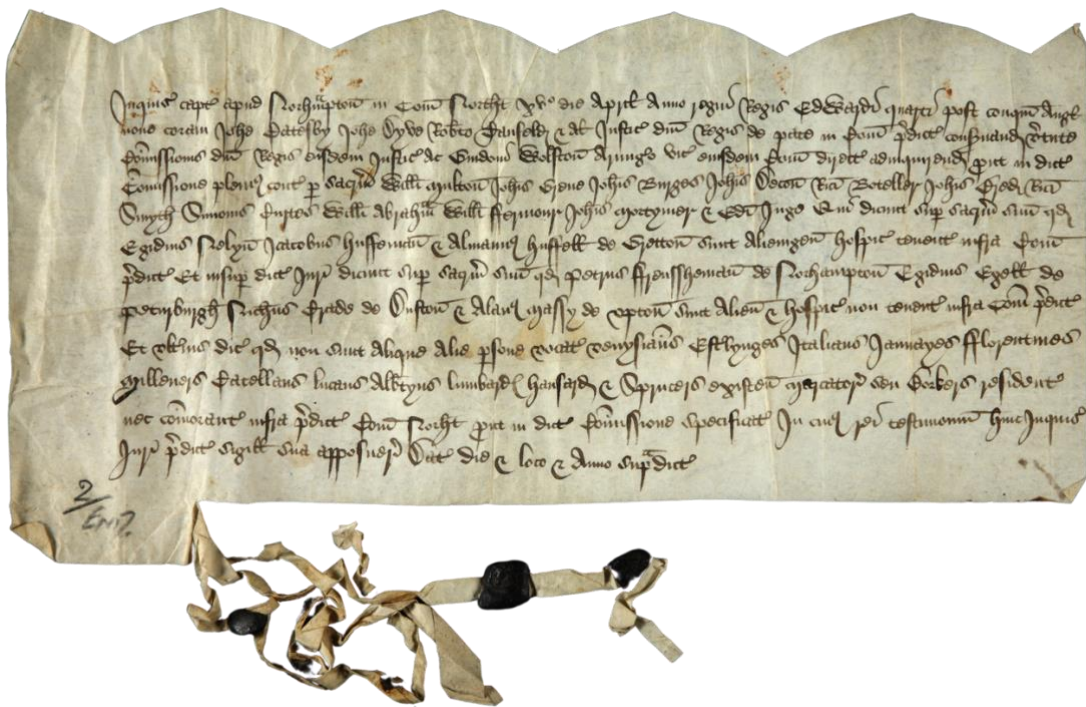 Inquis' capt' apud Norhampton in Com' Northt' xv° die April' Anno regni Regis Edwardi quarti post conqm Angl'
nono coram Joh'e Catesby Joh'e Dyve Rob'to Tanfeld & al' Justic' d'ni Regis de pace in Com' p'dict' conservand' v'tute
Com'issionis d'ni Regis eisdem Justic' ac Guidoni Wolston Armig'o vic' eiusdem Com' direct' ad inquirend' p'ut in dict'
Com'issione plenius cont' p' sacr'm Will'i Multon Joh'is Grene Joh'is Burges Joh'is Decon Ric'i Boteller Joh'is Ric'i
Smyth Simonis Curteis Will'i Abrah'm Will'i Ffermour Joh'is Mortymer & Ed'i Inge Qui dicunt sup' sacr'm suu' qd
Egidius Nelyn Jacobus Huffeman & Almanus Huffell de Gretton sunt Alienigen' hospic' tenent' infra Com'
p'dict' Et insup' dict' Jur' dicunt sup' sacr'm suu' qd Petrus Ffrenssheman de Northampton Egidius Egell de
Peturburgh Nich'us Erade de Duston & Alanus Massy de Upton sunt Alien' & hospic' non tenent' infra Com' p'dict'
Et ult'ius dic' qd non sunt alique alie p'sone vocat' Venysians Estlynges Italians Jannayes Fflorentines
Milleners Catellans lucans Alb'tyns lumbard' Hansard' & Sprucers existen' mercator' seu Brokers resident'
nec com'orant' infra p'dict' Com' Northt' p'ut in dict' Com'issione specificat' In cuius rei testimoniu' huic Inquis'
Jur' p'dict' sigill' sua apposuer' Dat' die & loco & Anno sup'adict'
2